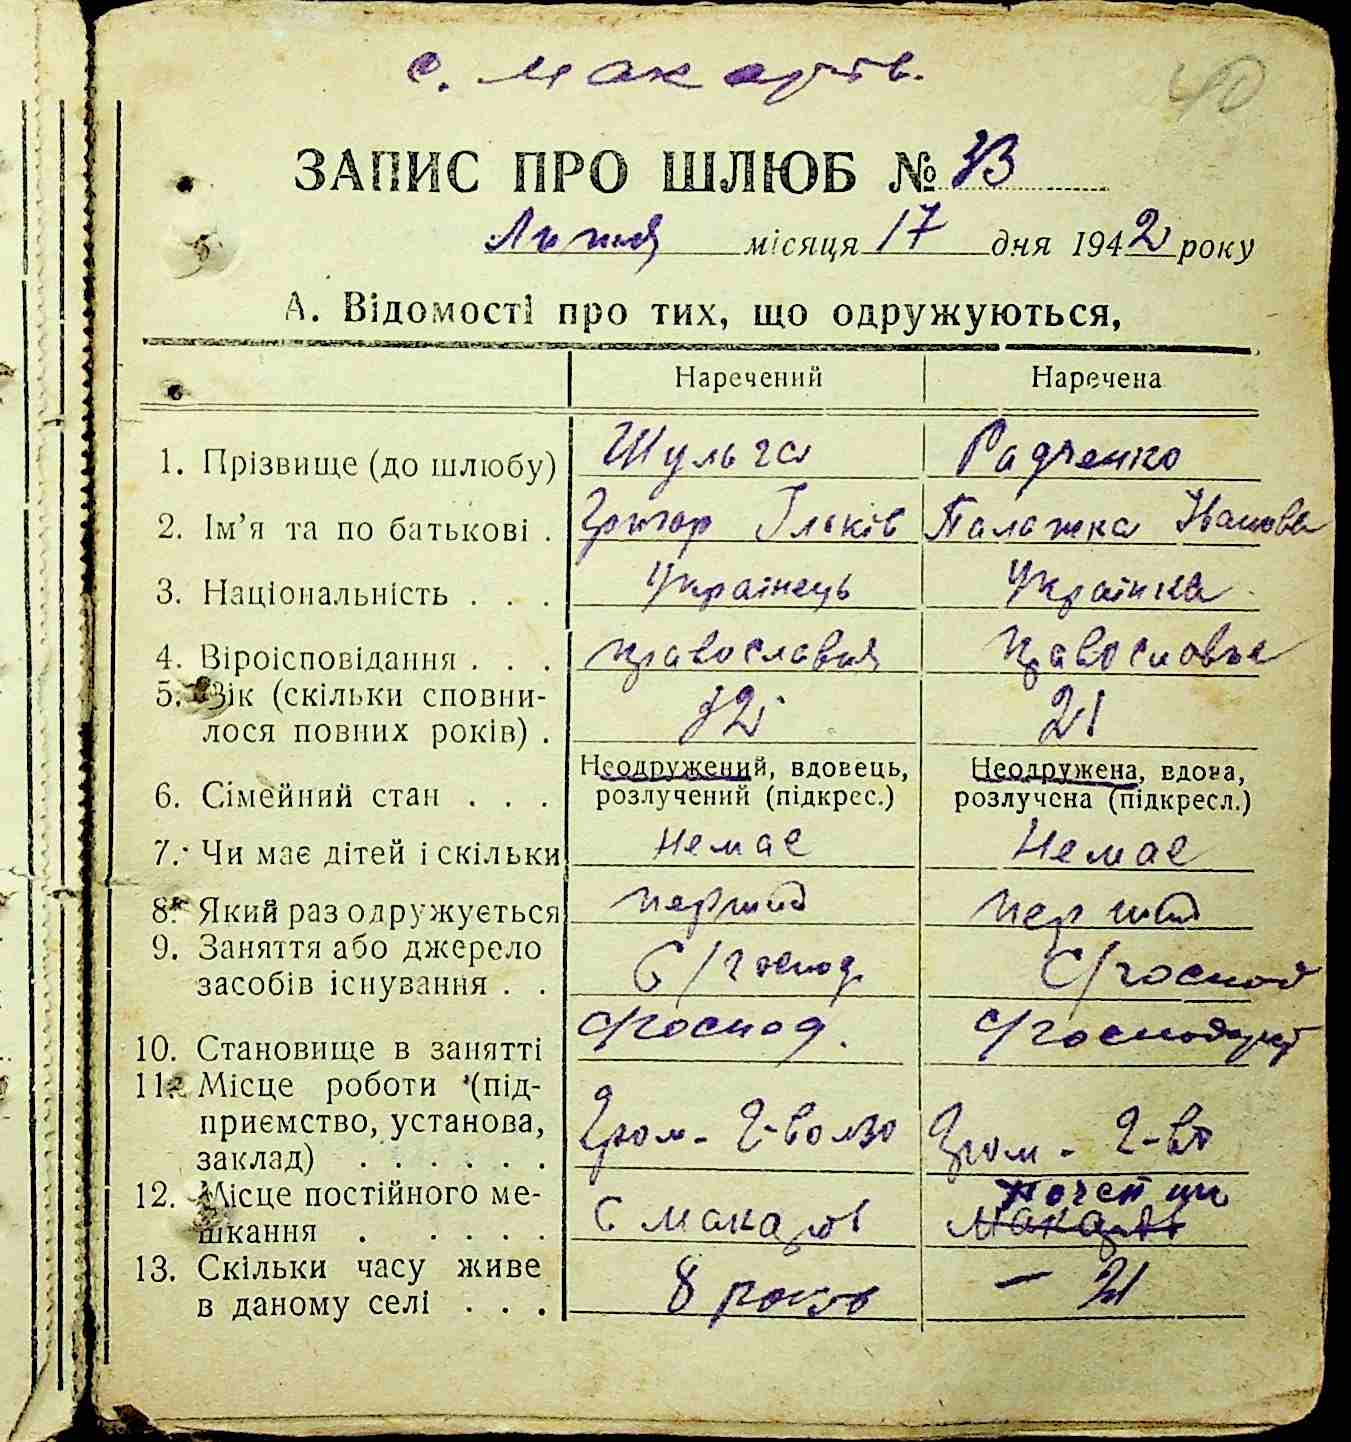 с. Макарів.
40
ЗАПИС ПРО ШЛЮБ № 33
Липня місяця 17 дня 1942 року
А. Відомості про тих, що одружуються,
Наречений Наречена
1. Прізвище (до шлюбу) Шульга Радченко
2. Ім'я та по батькові . Григор Ільків Палажка Іванова
3. Національність . . . Українець Українка
4. Віроісповідання . . . православня православне
5. Вік (скільки сповни-
лося повних років) . 32 21
Неодружений, вдовець, Неодружена, вдова,
6. Сімейний стан . . . розлучений (підкрес.) розлучена (підкресл.)
7. Чи має дітей і скільки Немае Немае
8. Який раз одружується перший перший
9. Заняття або джерело
засобів існування . . С/господ. С/господ
10. Становище в занятті с/господ.
11. Місце роботи (під-
приємство, установа,
заклад) . . . . . . Гром. Г-во
12. Місце постійного ме-
шкання . . . . . . С Макарів Макарів
13. Скільки часу живе
в даному селі . . . 8 років — 21